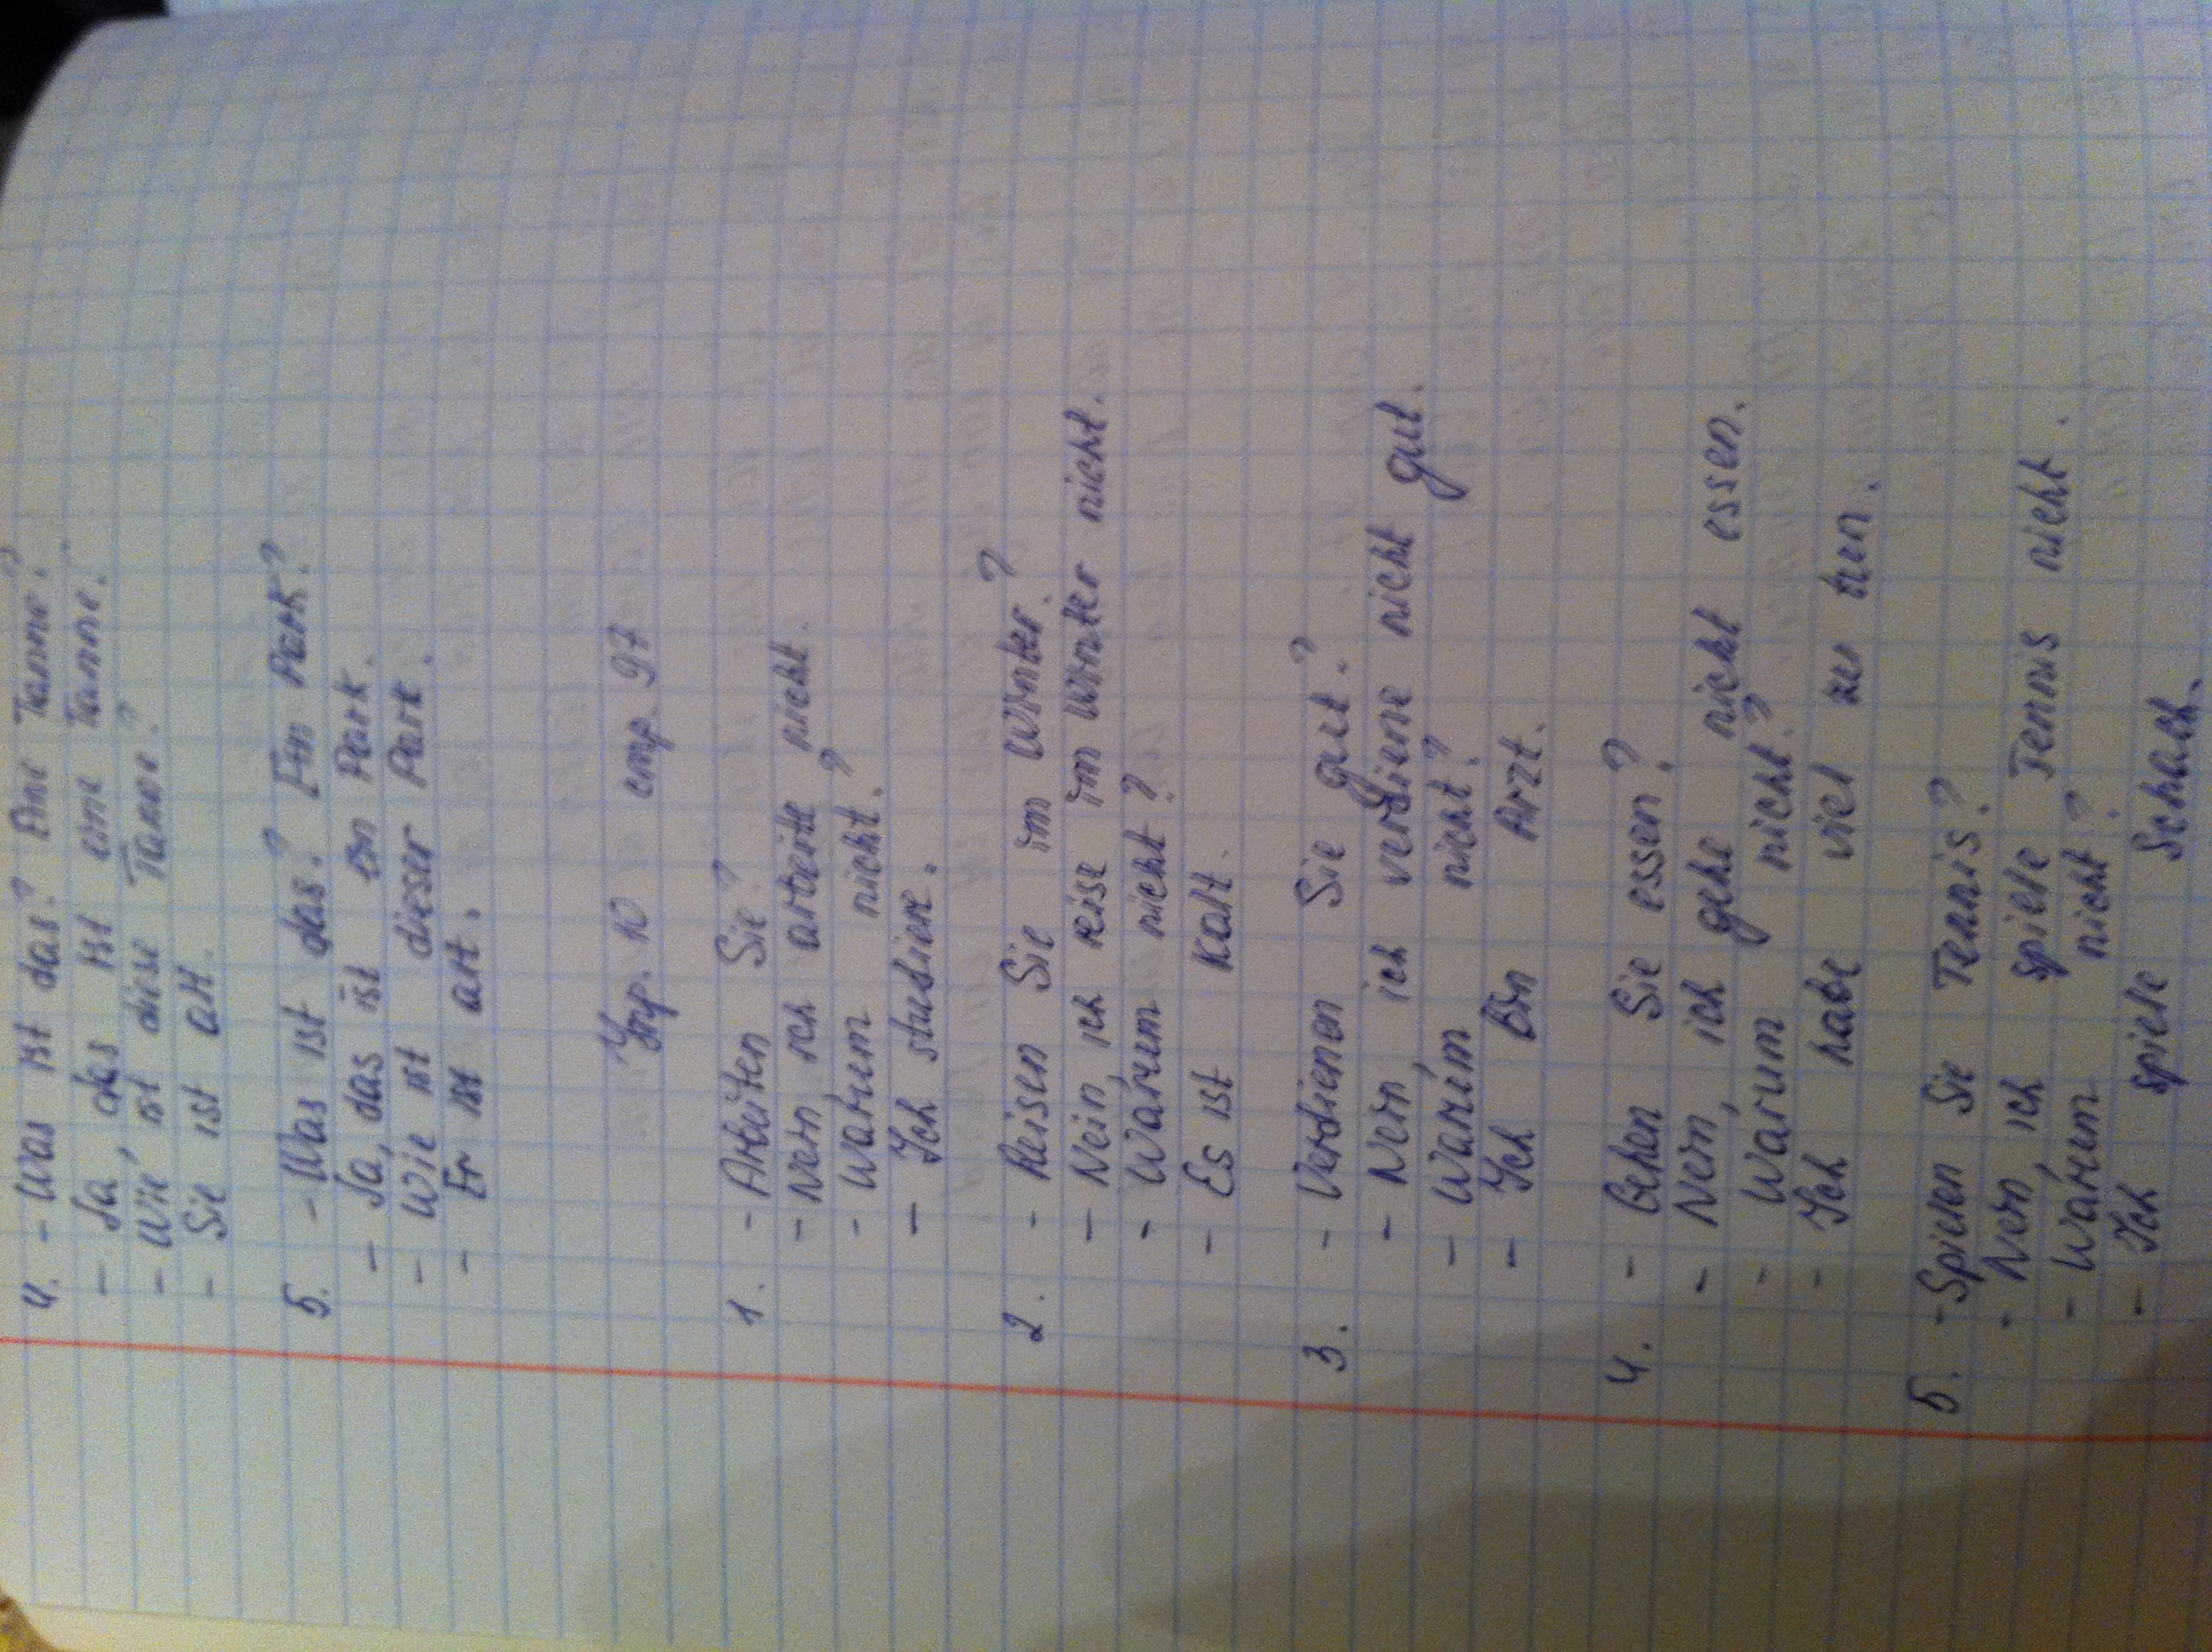 4. - Was ist das? Eine Tanne?
- Ja, das ist eine Tanne.
- Wie ist diese Tanne?
- Sie ist alt.
5. - Was ist das? Ein Park?
- Ja, das ist ein Park.
- Wie ist dieser Park.
- Er ist alt.
Упр. 10 стр. 97
1. - Arbeiten Sie?
- Nein, ich arbeite nicht.
- Warum nicht?
- Ich studiere.
2. - Reisen Sie im Winter?
- Nein, ich reise im Winter nicht.
- Warum nicht?
- Es ist kalt.
3. - Verdienen Sie gut?
- Nein, ich verdiene nicht gut.
- Warum nicht?
- Ich bin Arzt.
4. - Gehen Sie essen?
- Nein, ich gehe nicht essen.
- Warum nicht?
- Ich habe viel zu tun.
5. - Spielen Sie Tennis?
- Nein, ich spiele Tennis nicht.
- Warum nicht?
- Ich spiele Schach.